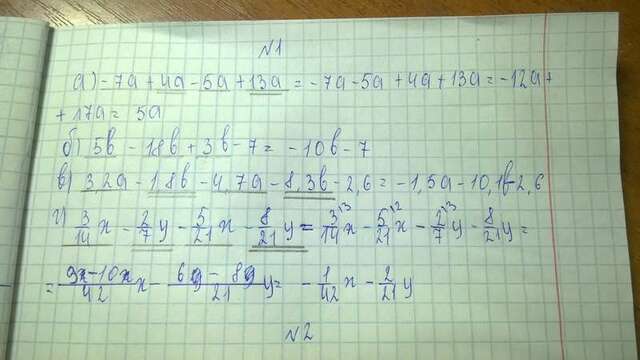 N1
а) -7a + 4a - 5a + 13a = -7a - 5a + 4a + 13a = -12a +
+ 17a = 5a
б) 5b - 18b + 3b - 7 = -10b - 7
в) 3,2a - 1,8b - 4,7a - 8,3b - 2,6 = -1,5a - 10,1b - 2,6
г) 3/14 x - 2/7 y - 5/21 x - 8/21 y = 3/14 x - 5/21 x - 2/7 y - 8/21 y =
= 9x - 10x/42 x - 6y - 8y/21 y = - 1/42 x - 2/21 y
N2